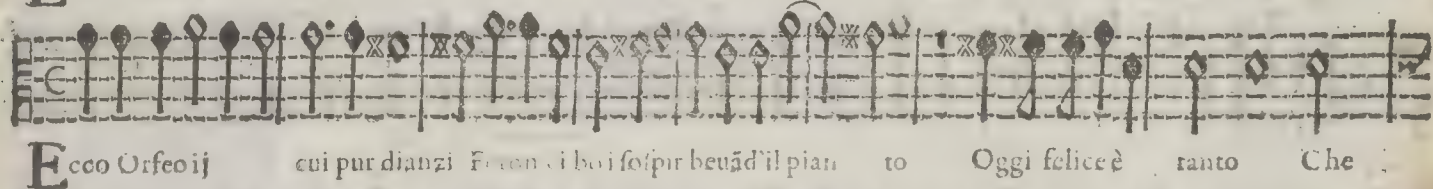 Ecco Orfeo ij cui pur dianzi i ſoſpir beuãd'il pian to Oggi felice è tanto Che